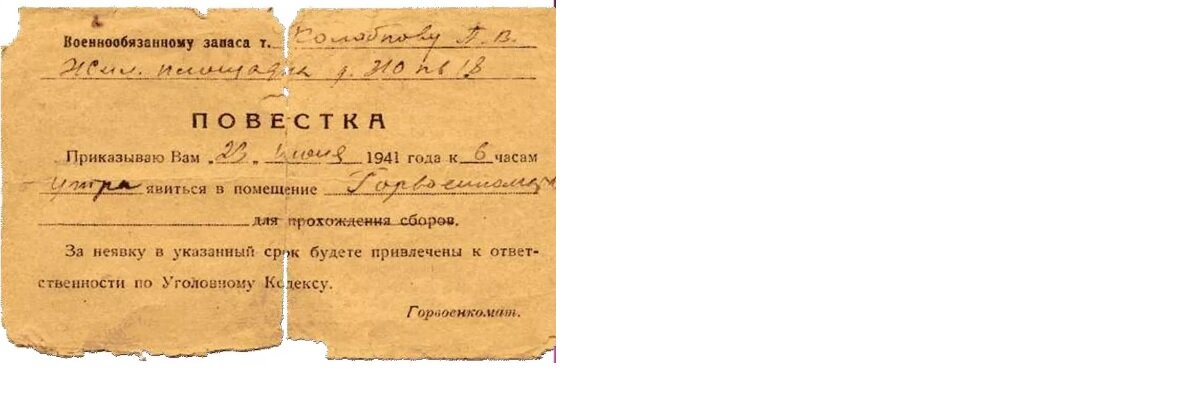 Военнообязанному запаса т. Колобкову П. В.
Жил. площадка д. No
ПОВЕСТКА
Приказываю Вам „23„ июня 1941 года к 6 часам
утра явиться в помещение Горвоенкомата
для прохождения сборов.
За неявку в указанный срок будете привлечены к ответ-
ственности по Уголовному Кодексу.
Горвоенкомат.